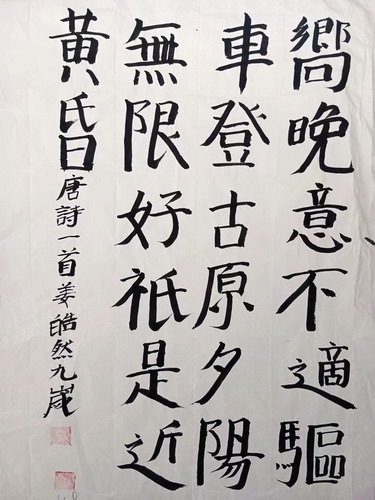 嚮晚意不適驅
車登古原夕陽
無限好祇是近
黃昏唐詩一首姜皓然九歲